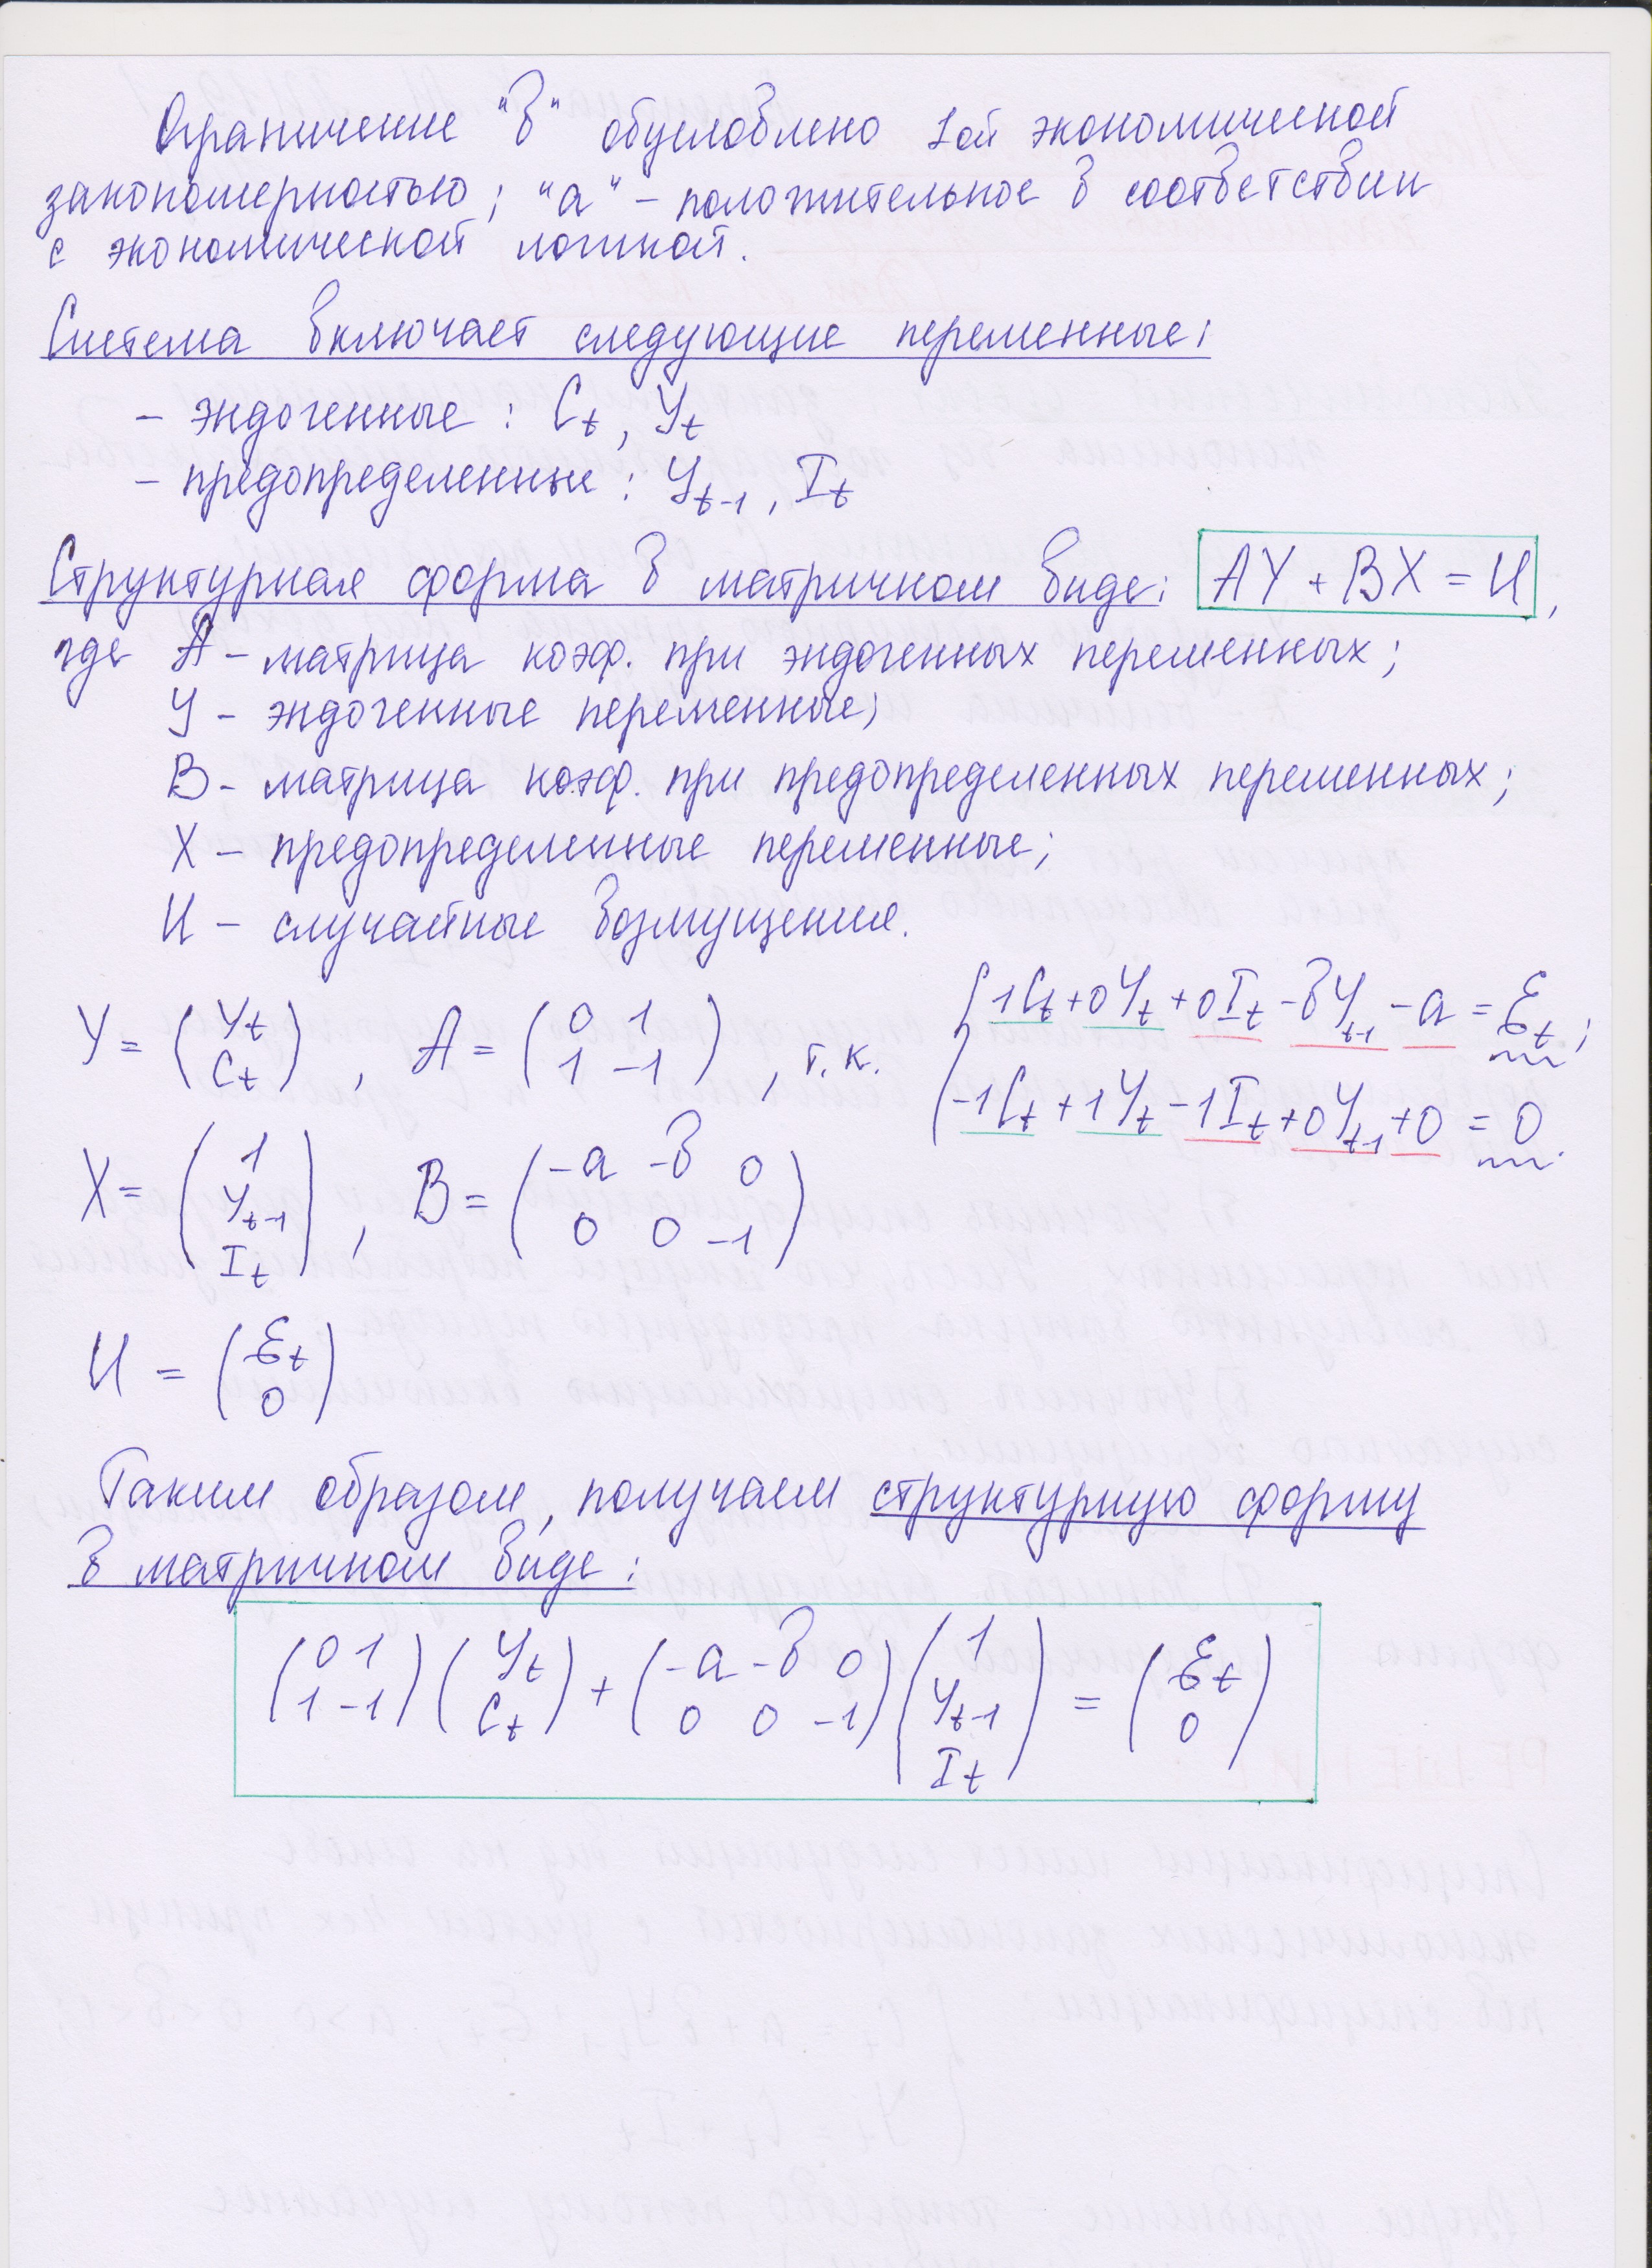 Ограничение "в" обусловлено 1ой экономической
закономерностью; "а" – положительное в соответствии
с экономической логикой.
Система включает следующие переменные:
– эндогенные : Ct, Yt
– предопределенные : Yt-1, It
Структурная форма в матричном виде: AY + BX = U,
где А – матрица коэф. при эндогенных переменных;
Y – эндогенные переменные;
B – матрица коэф. при предопределенных переменных;
X – предопределенные переменные;
U – случайные возмущения.
Y = (Yt Ct), A = (0 1 1 -1), т.к. { 1Ct + 0Yt + 0It - вYt-1 - a = Ɛt;
-1Ct + 1Yt - 1It + 0Yt-1 + 0 = 0.
X = (1 Yt-1 It), B = (-a -в 0 0 0 -1)
U = (Ɛt 0)
Таким образом, получаем структурную форму
в матричном виде:
(0 1 1 -1)(Yt Ct) + (-a -в 0 0 0 -1)(1 Yt-1 It) = (Ɛt 0)